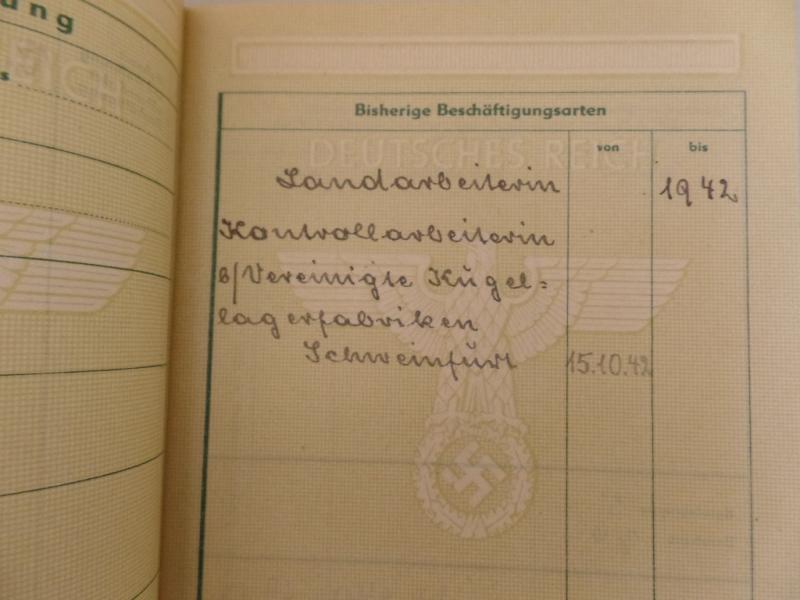 ung
s
EICH
Bisherige Beschäftigungsarten
von bis
DEUTSCHES REICH
Landarbeiterin 1942
Kontrollarbeiterin
b/Vereinigte Kugel=
lagerfabriken
Schweinfurt 15.10.42